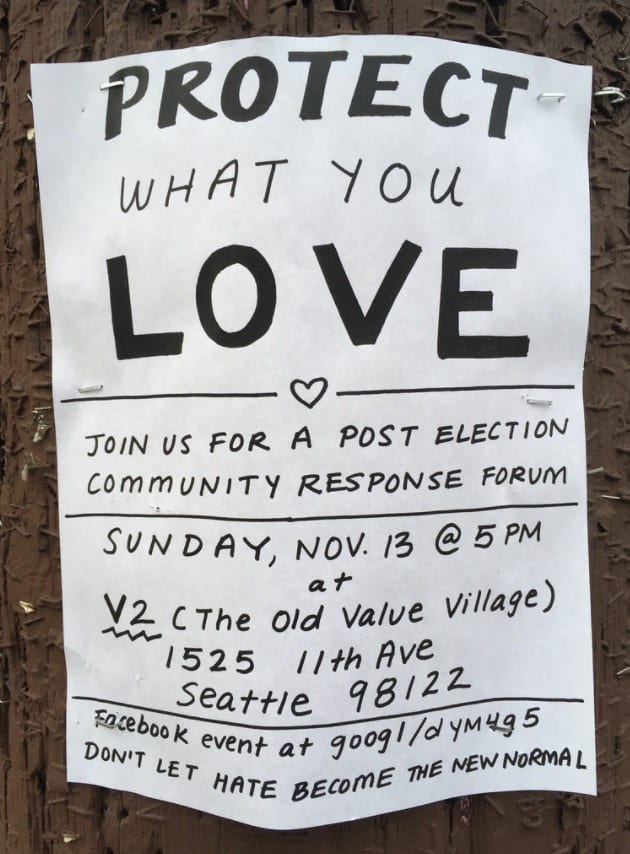 PROTECT
WHAT YOU
LOVE
JOIN US FOR A POST ELECTION
COMMUNITY RESPONSE FORUM
SUNDAY, NOV. 13 @ 5 PM
at
V2 (The Old Value Village)
1525 11th Ave
Seattle 98122
Facebook event at googl/dyM4g5
DON'T LET HATE BECOME THE NEW NORMAL